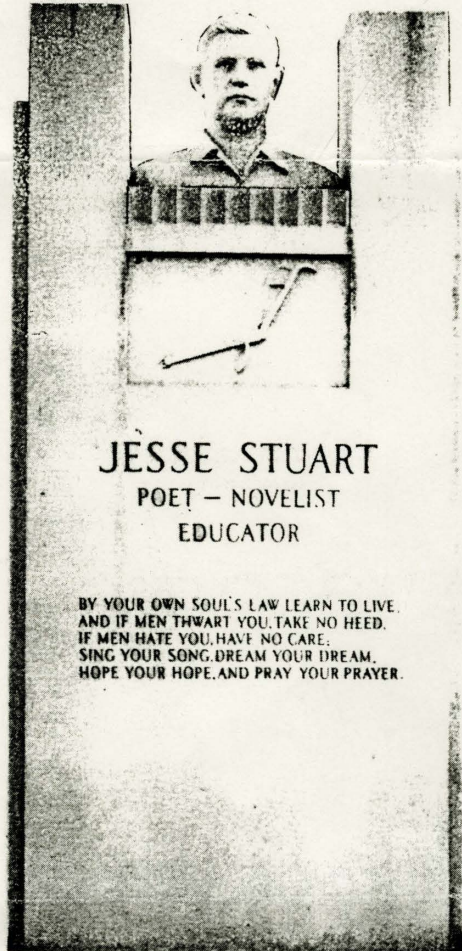 JESSE STUART
POET – NOVELIST
EDUCATOR
BY YOUR OWN SOUL'S LAW LEARN TO LIVE.
AND IF MEN THWART YOU, TAKE NO HEED.
IF MEN HATE YOU, HAVE NO CARE;
SING YOUR SONG, DREAM YOUR DREAM,
HOPE YOUR HOPE, AND PRAY YOUR PRAYER.